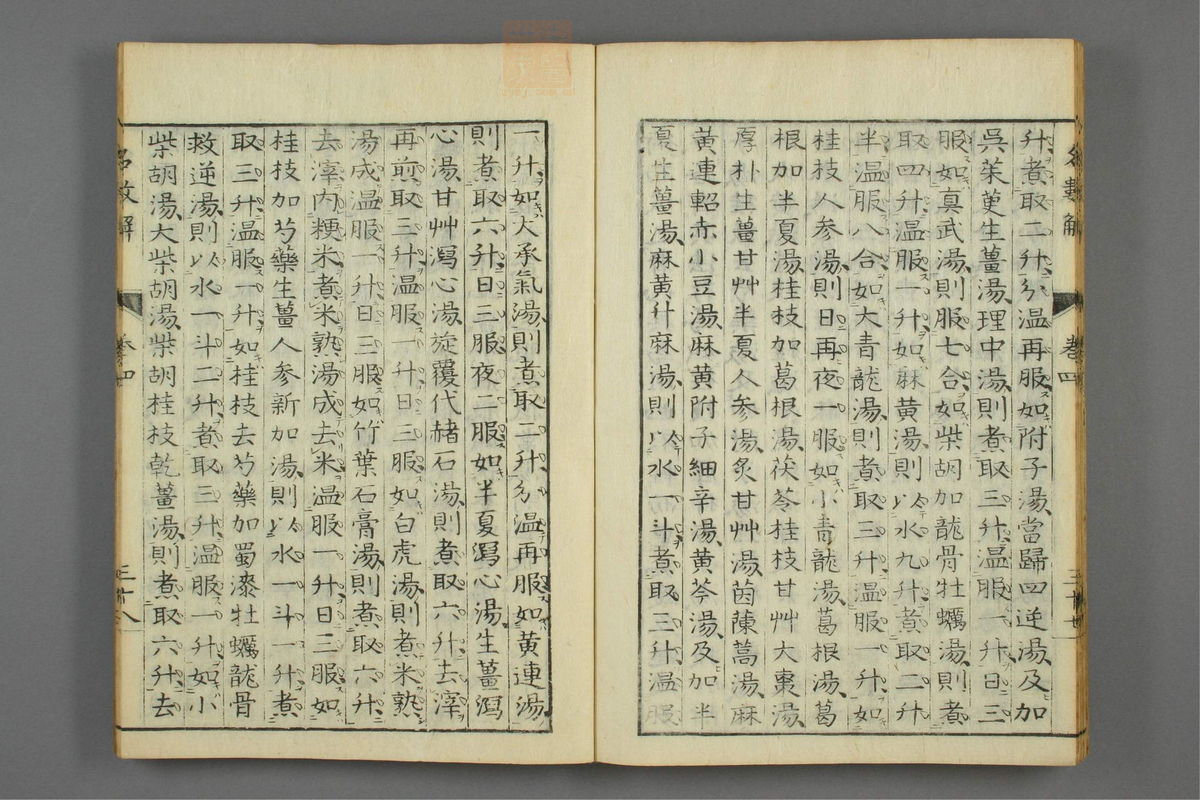 升煮取二升分温再服如附子湯當歸四逆湯及加
吳茱萸生薑湯理中湯則煮取三升温服一升日三
服如真武湯則服七合如柴胡加龍骨牡蠣湯則煮
取四升温服一升如麻黄湯則以水九升煮取二升
半温服八合如大青龍湯則煮取三升温服一升如
桂枝人参湯則日再夜一服如小青龍湯葛根湯葛
根加半夏湯桂枝加葛根湯茯苓桂枝甘艸大棗湯
厚朴生薑甘艸半夏人参湯炙甘艸湯茵蔯蒿湯麻
黄連軺赤小豆湯麻黄附子細辛湯黄芩湯及加半
夏生薑湯麻黄升麻湯則以水一斗煮取三升温服
名數解 卷四
一升如大承氣湯則煮取二升分温再服如黄連湯
則煮取六升日三服夜二服如半夏瀉心湯生薑瀉
心湯甘艸瀉心湯旋覆代赭石湯則煮取六升去滓
再煎取三升温服一升日三服如白虎湯則煮米熟
湯成温服一升日三服如竹葉石膏湯則煮取六升
去滓内粳米煮米熟湯成去米温服一升日三服如
桂枝加芍藥生薑人参新加湯則以水一斗一升煮
取三升温服一升如桂枝去芍藥加蜀漆牡蠣龍骨
救逆湯則以水一斗二升煮取三升温服一升如小
柴胡湯大柴胡湯柴胡桂枝乾薑湯則煮取六升去
名數解 卷四 三十八